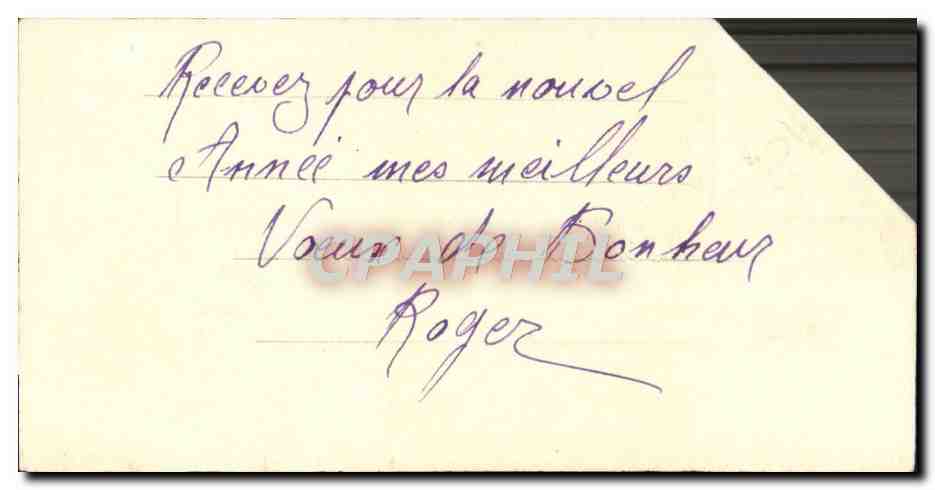 Recevez pour la nouvel
Année mes meilleurs
Voeux de Bonheur
CPAPHIL
Roger